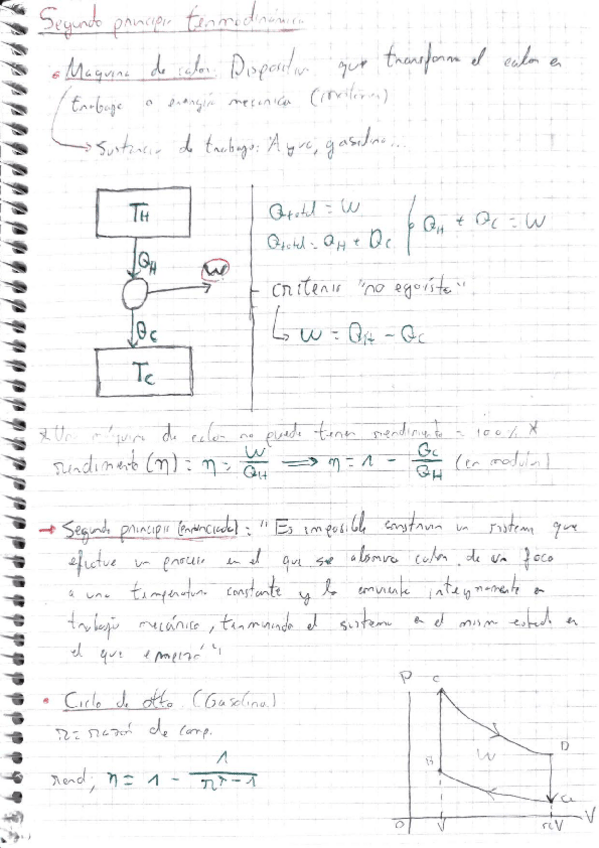 Segundo principio termodinámica
• Maquina de calor: Dispositivo que transforma el calor en
trabajo o energía mecánica
→ Sustancia de trabajo: Agua, gasolina...
TH
QH
W
QC
TC
Qtotal = W
Qtotal = QH + QC
QH + QC = W
- criterio "no egoísta"
↳ W = QH - QC
* Una máquina de calor no puede tener rendimiento = 100% *
rendimiento (η) = η = W/QH ⟹ η = 1 - QC/QH (en modulo)
→ Segundo principio (enunciado): "Es imposible construir un sistema que
efectue un proceso en el que se absorva calor de un foco
a una temperatura constante y lo convierta integramente en
trabajo mecánico, terminando el sistema en el mismo estado en
el que empezó"
• Ciclo de otto (Gasolina)
r = razón de comp.
rend; η = 1 - 1/r^γ-1
P
C
B
W
D
a
O
V
rV
V